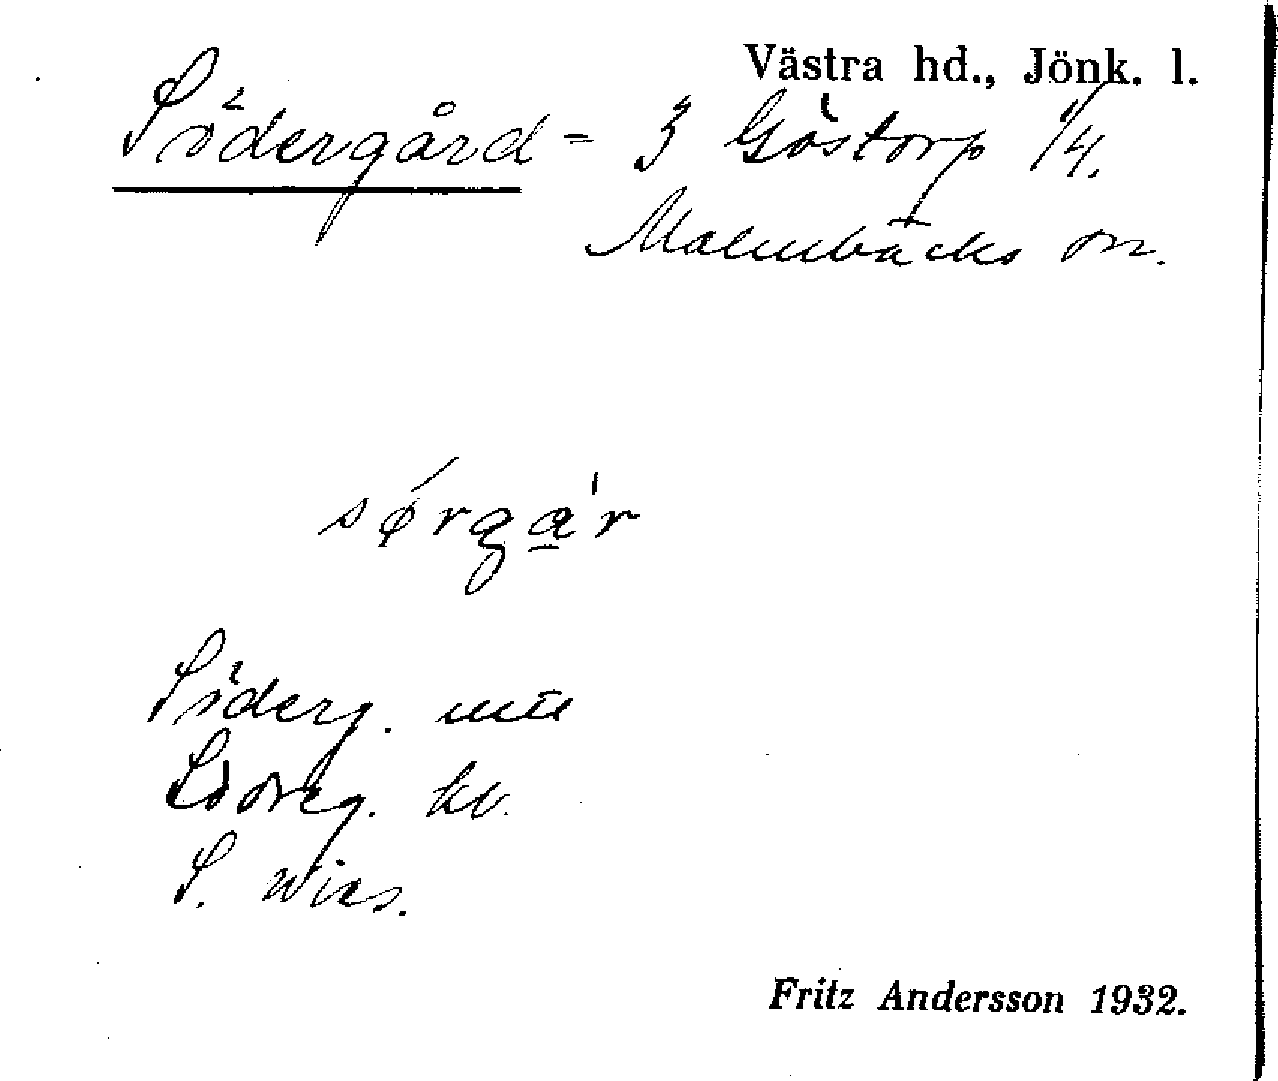 Västra hd., Jönk. l.
Södergård = 3 Göstorp 1/4.
Malmbäcks sn.
sørgår
Söderg. mtl
Söderg. hv.
S. wies.
Fritz Andersson 1932.